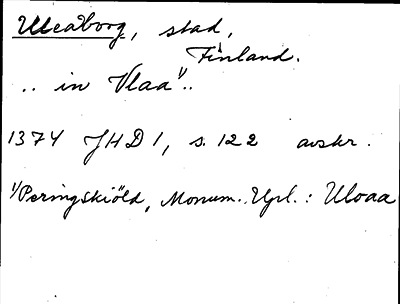 Uleåborg, stad,
Finland.
.. in Vlaa¹⁾..
1374 JHD 1, s. 122 avskr.
¹⁾Peringskiöld, Monum. Upl.: Uloaa